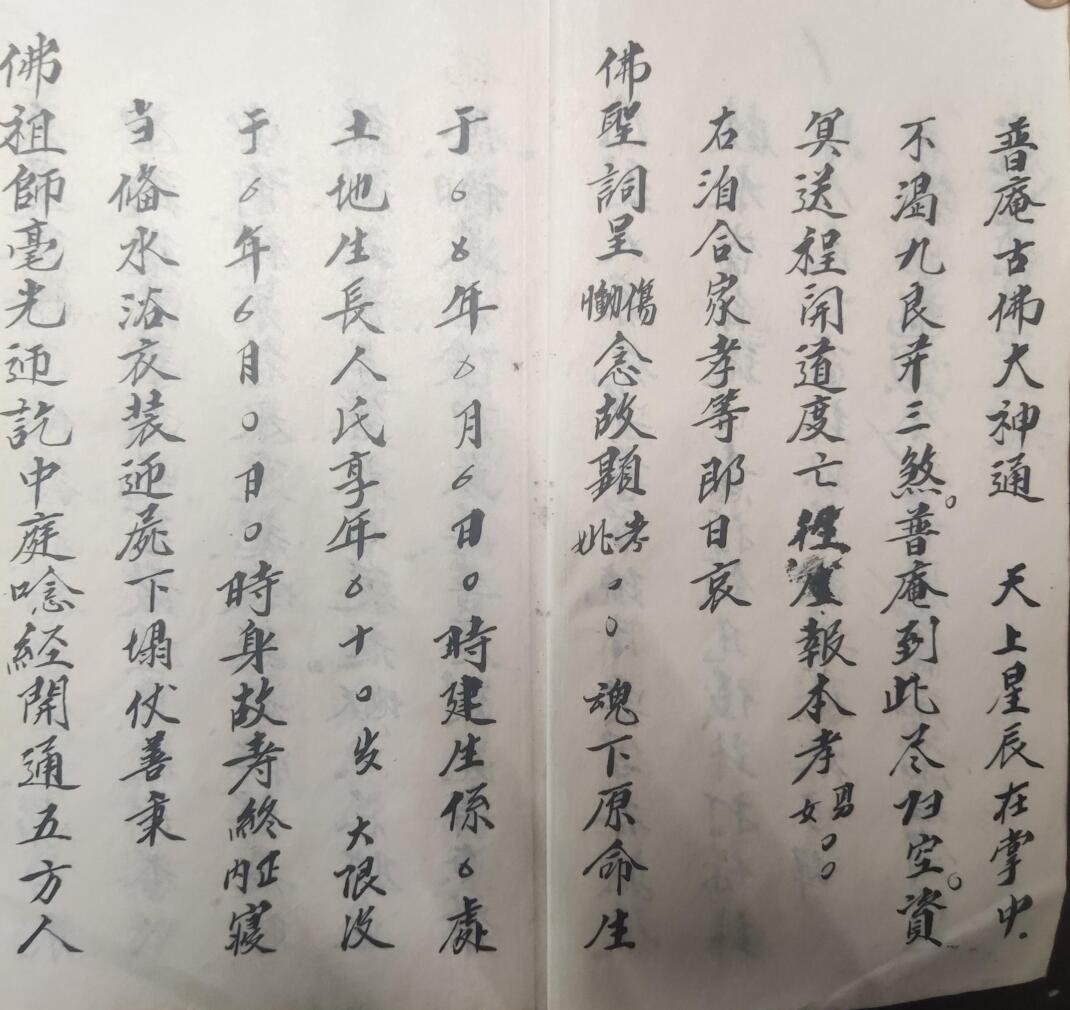 普庵古佛大神通　天上星辰在掌中.
不渴九良并三煞。普庵到此尽归空。資
冥送程開道度亡 報本孝男女○○
右洎合家孝等即日哀
佛聖詞呈慟傷念故顕妣考○○魂下原命生
于○○年○月○日○時建生係○處
土地生長人氏享年○十○岁大限没
于○年○月○日○時身故寿終内正寝
当備水浴衣装迊屍下塌仗善秉
佛祖師毫光迊訖中庭唸経開通五方人